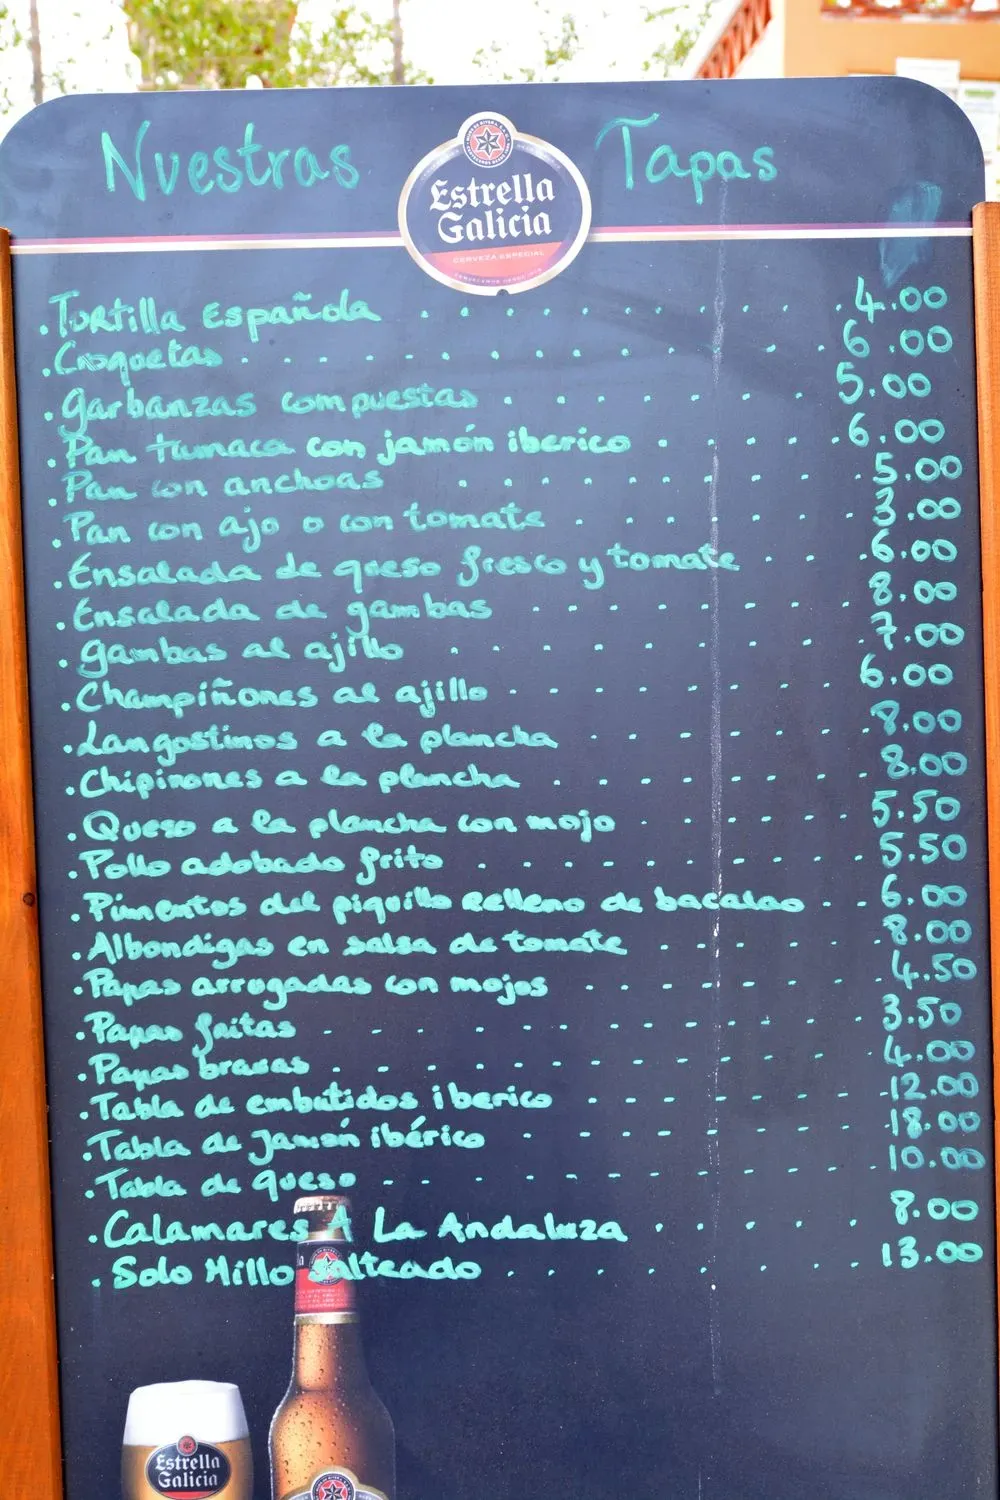 Nuestras Tapas
Estrella
Galicia
CERVEZA ESPECIAL
.Tortilla Española . . . . . . . . . . . 4.00
.Croquetas . . . . . . . . . . . . . 6.00
.Garbanzas compuestas . . . . . . . . 5.00
.Pan tumaca con jamón iberico . . . . . 6.00
.Pan con anchoas . . . . . . . . . . 5.00
.Pan con ajo o con tomate . . . . . . . 3.00
.Ensalada de queso fresco y tomate . . . 6.00
.Ensalada de gambas . . . . . . . . 8.00
.gambas al ajillo . . . . . . . . . 7.00
.Champiñones al ajillo . . . . . . . . . 6.00
.Langostinos a la plancha . . . . . . . 8.00
.Chipirones a la plancha . . . . . . . . 8.00
.Queso a la plancha con mojo . . . . . . 5.50
.Pollo adobado frito . . . . . . . . . . 5.50
.Pimentos del piquillo relleno de bacalao . . 6.00
.Albondigas en salsa de tomate . . . . . . 8.00
.Papas arrugadas con mojos . . . . . . . 4.50
.Papas fritas . . . . . . . . . . . . 3.50
.Papas bravas . . . . . . . . . . . . 4.00
.Tabla de embutidos iberico . . . . . . . 12.00
.Tabla de Jamón ibérico . . . . . . . . 18.00
.Tabla de queso . . . . . . . . . . . 10.00
.Calamares A La Andaluza . . . . . . 8.00
.Solo Millo Salteado . . . . . . . . 13.00
Estrella
Galicia